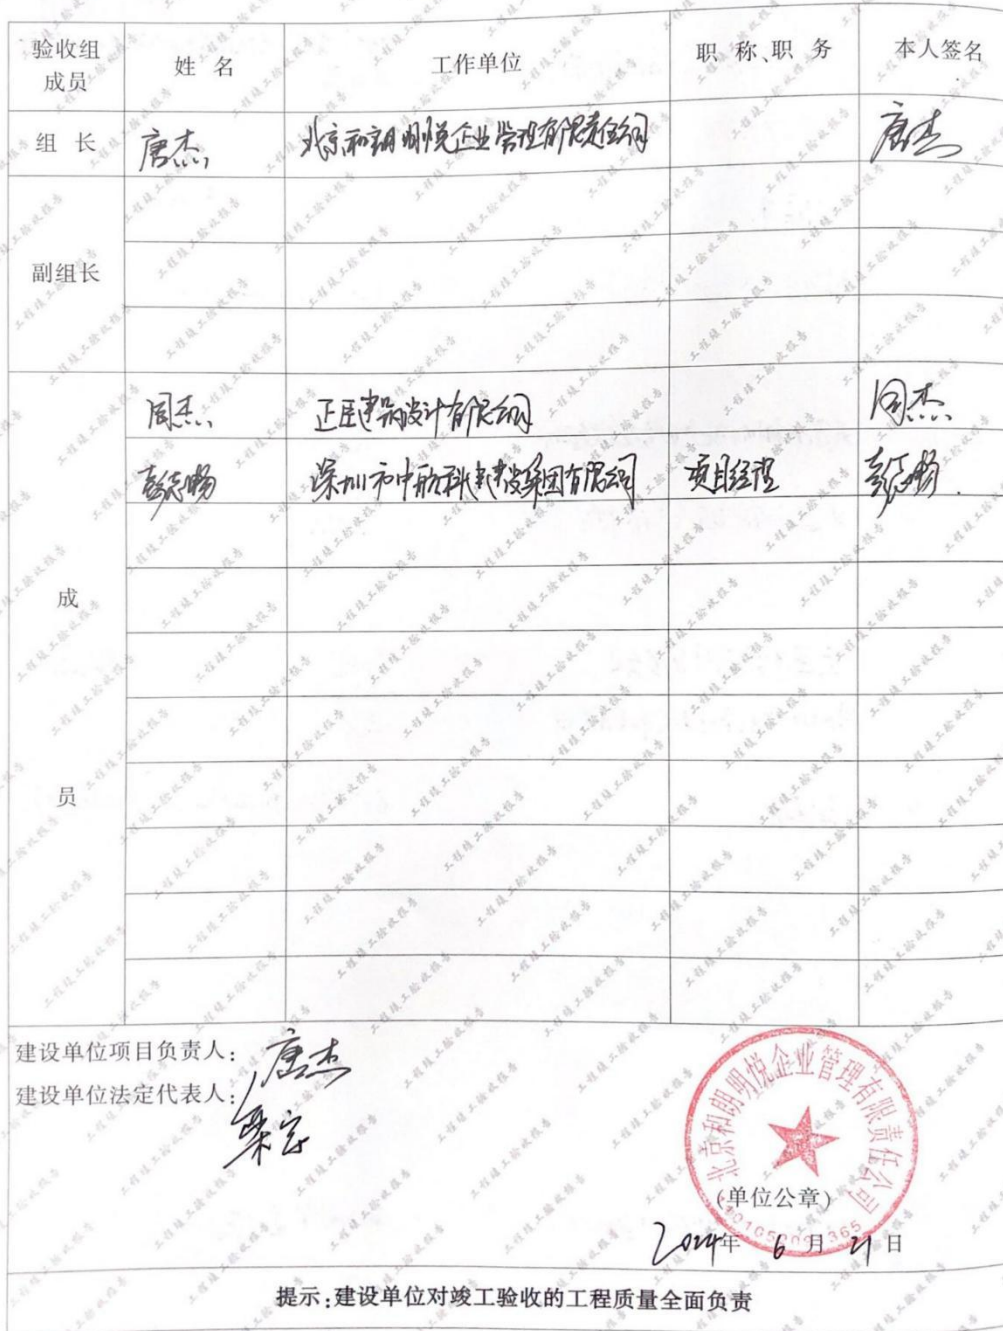 验收组成员 姓 名 工作单位 职 称、职 务 本人签名
组 长 唐杰 北京和朗明悦企业管理有限责任公司 唐杰
副组长
周杰 正匠建筑设计有限公司 周杰
深圳市中航科建建设集团有限公司 项目经理
成
员
建设单位项目负责人: 唐杰
建设单位法定代表人:
北京和朗明悦企业管理有限责任公司
(单位公章)
2024年 6 月 21 日
提示:建设单位对竣工验收的工程质量全面负责
工程竣工验收报告